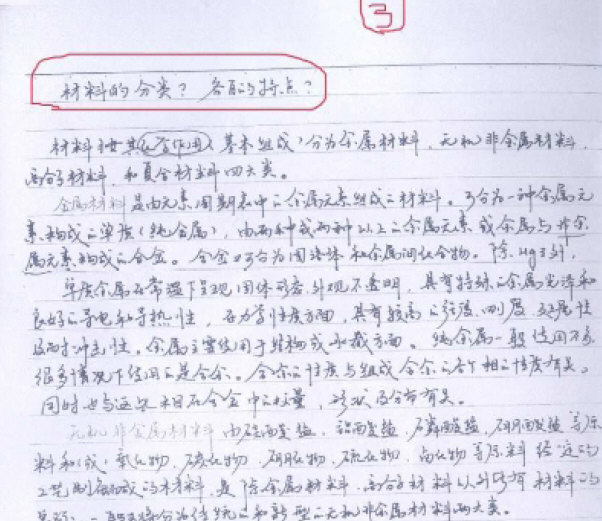 3
材料的分类？各自的特点？
材料按其化学作用（基本组成）分为金属材料、无机非金属材料、
高分子材料、和复合材料四大类。
金属材料是由元素周期表中之金属元素组成之材料。可分为一种金属元
素构成之单质（纯金属），由两种或两种以上之金属元素或金属与非金
属元素构成之合金。合金又可分为固溶体和金属间化合物。除Hg之外，
单质金属在常温下呈现固体形态，外观不透明，具有特殊之金属光泽和
良好之导电和导热性，在力学性质方面，具有较高之强度、刚度、延展性
及耐冲击性。金属主要使用于结构或承载方面。纯金属一般使用不多
很多情况下使用之是合金。合金之性质与组成合金之各个相之性质有关。
同时也与这些相在合金中之数量，形状及分布有关。
无机非金属材料由硅酸盐、铝酸盐、磷酸盐、硼酸盐等原
料和（或）氧化物、碳化物、硼化物、硫化物、卤化物等原料经一定的
工艺制备而成的材料，是除金属材料、高分子材料以外所有材料的
总称。一般可分为传统之和新型之无机非金属材料两大类。